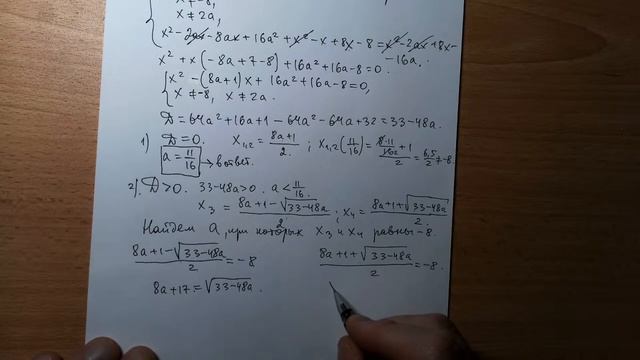 x ≠ -8,
x ≠ 2a,
x² - 2ax - 8ax + 16a² + x² - x + 8x - 8 = x² - 2ax + 8x -
- 16a.
x² + x(-8a + 7 - 8) + 16a² + 16a - 8 = 0.
x² - (8a+1)x + 16a² + 16a - 8 = 0,
x ≠ -8, x ≠ 2a.
D = 64a² + 16a + 1 - 64a² - 64a + 32 = 33 - 48a.
1) D = 0. x₁,₂ = (8a+1)/2 ; x₁,₂(11/16) = (8·11/16 + 1)/2 = 6,5/2 ≠ -8.
a = 11/16 → в ответ.
2) D > 0. 33 - 48a > 0. a < 11/16.
x₃ = (8a+1-√(33-48a))/2 ; x₄ = (8a+1+√(33-48a))/2.
Найдем a, при которых x₃ и x₄ равны -8.
(8a+1-√(33-48a))/2 = -8 (8a+1+√(33-48a))/2 = -8.
8a + 17 = √(33-48a).